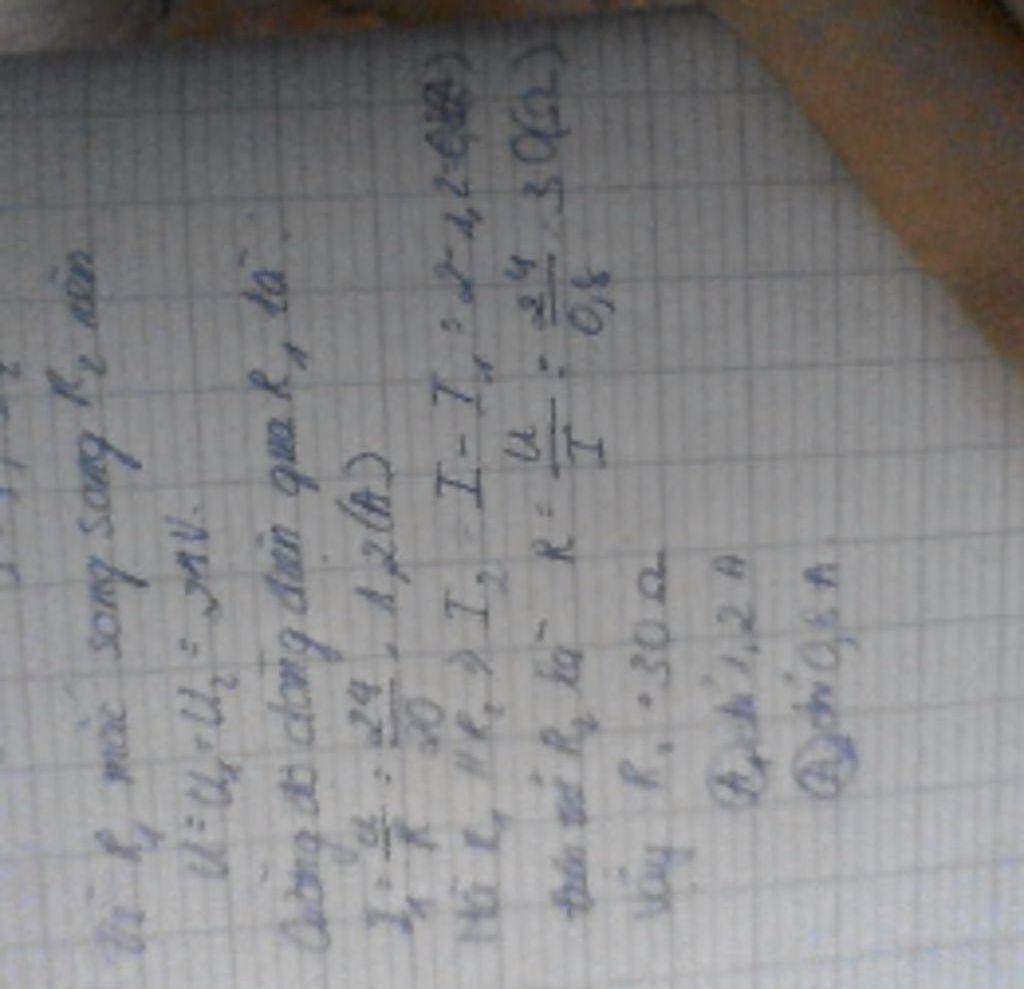 Vì R1 mắc song song R2 nên
U = U1 = U2 = 24V.
Cường độ dòng điện qua R1 là
I1 = U/R = 24/20 = 1,2(A)
Mà R1 // R2 => I2 = I - I1 = 2 - 1,2 =
R2 là R = U/I = 24/0,8 = 30(Ω)
Vậy R2 = 30Ω
A1 chỉ 1,2A
A2 chỉ 0,8A